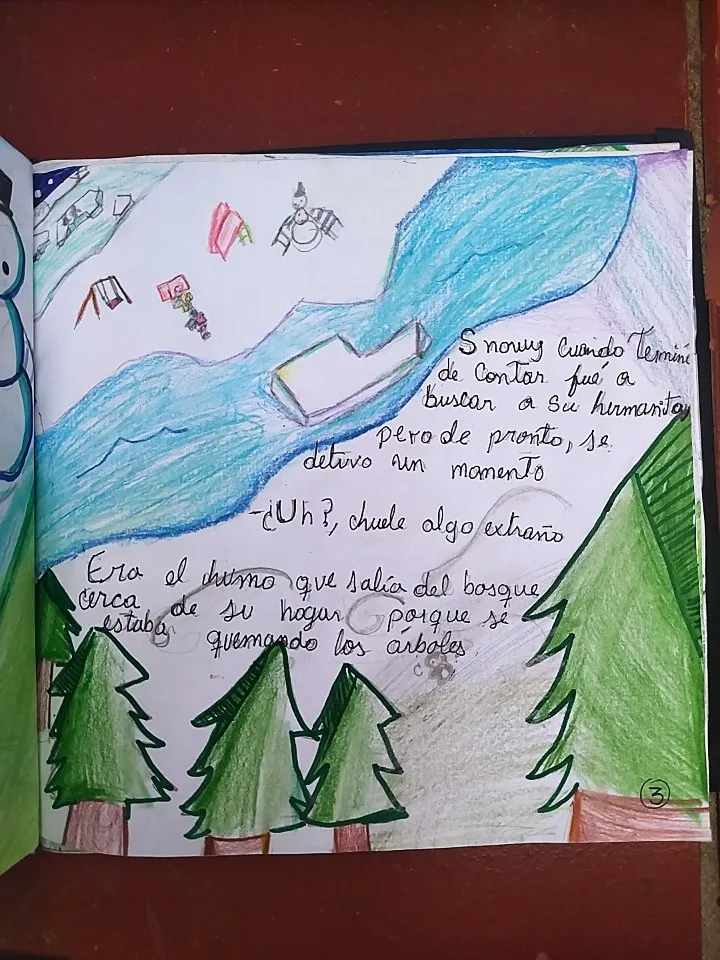 Snowy cuando terminé
de contar fué a
buscar a su hermanita,
pero de pronto, se
detuvo un momento
-¿Uh?, chuele algo extraño
Era el humo que salía del bosque
cerca de su hogar porque se
estaba quemando los árboles.
3